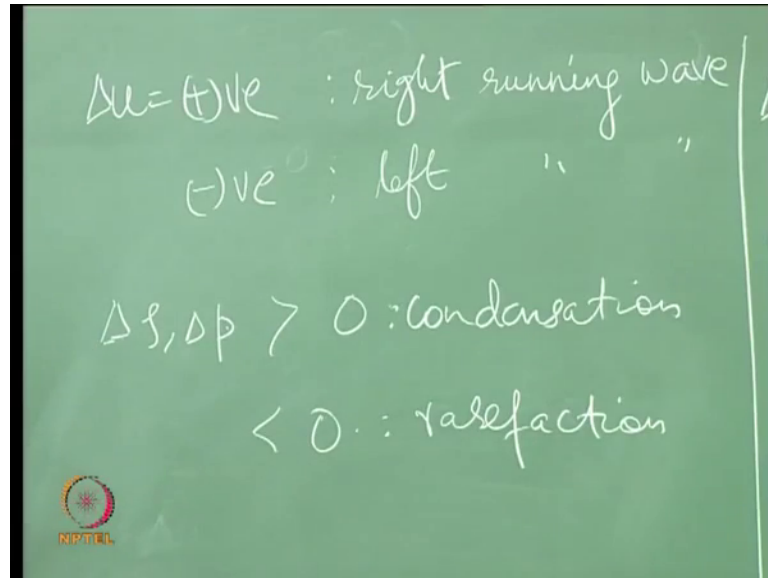 Δu = (+)ve : right running wave
(-)ve : left " "
Δρ, Δp > 0 : condensation
< 0 : rarefaction
NPTEL